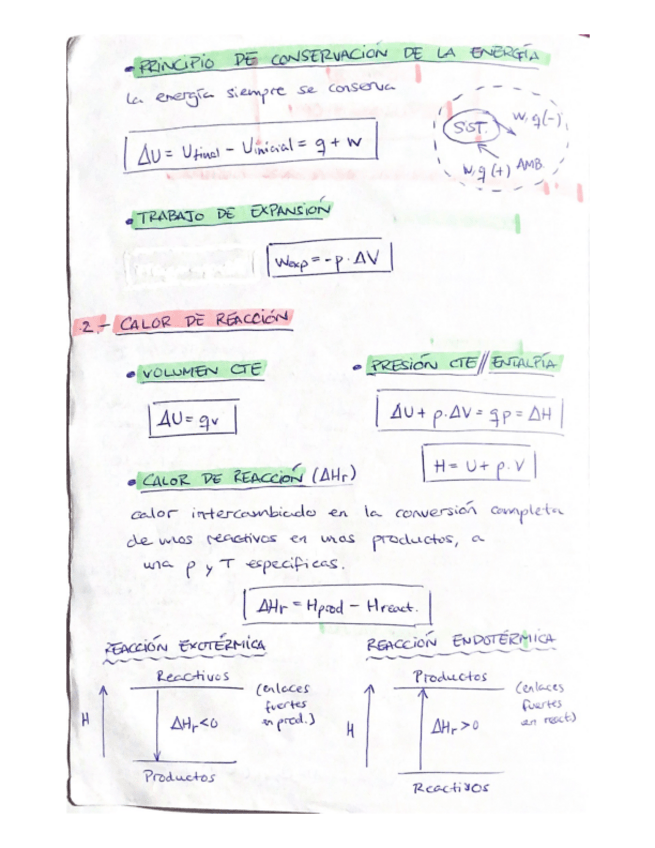 • PRINCIPIO DE CONSERVACIÓN DE LA ENERGÍA
La energía siempre se conserva
ΔU = Ufinal - Uinicial = q + w
SIST.
w, q (-)
w, q (+) AMB.
• TRABAJO DE EXPANSIÓN
Wexp = -p · ΔV
2.- CALOR DE REACCIÓN
• VOLUMEN CTE
ΔU = qv
• PRESIÓN CTE // ENTALPÍA
ΔU + p·ΔV = qp = ΔH
H = U + p·V
• CALOR DE REACCIÓN (ΔHr)
calor intercambiado en la conversión completa
de unos reactivos en unos productos, a
una p y T específicas.
ΔHr = Hprod - Hreact.
REACCIÓN EXOTÉRMICA
Reactivos
H
ΔHr<0
(enlaces
fuertes
en prod.)
Productos
REACCIÓN ENDOTÉRMICA
Productos
H
ΔHr>0
(enlaces
fuertes
en react)
Reactivos